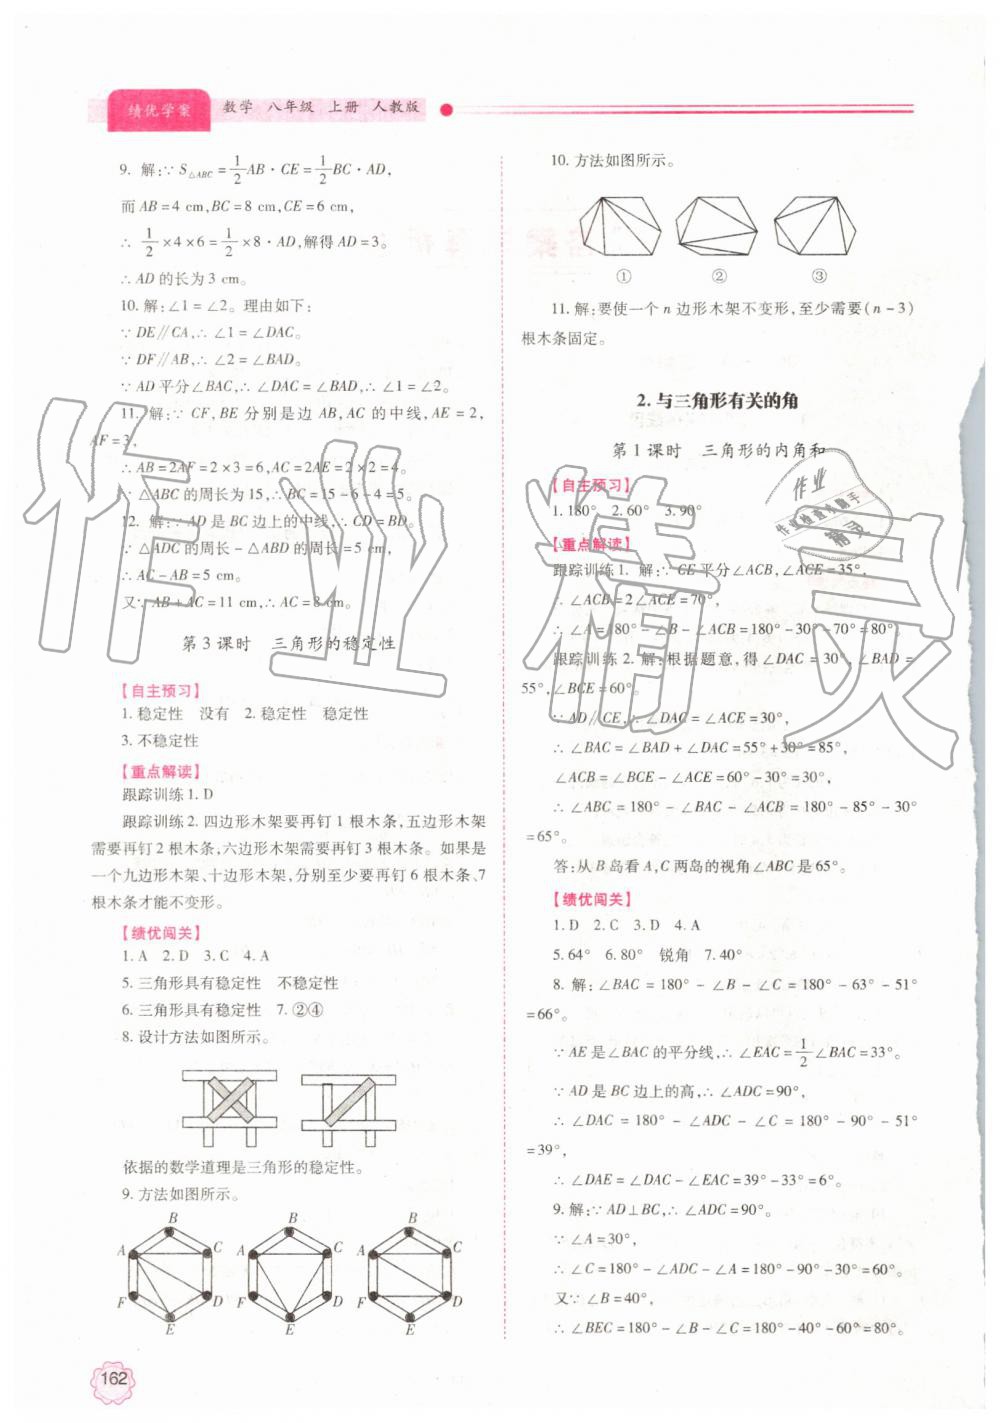 绩优学案 数学 八年级 上册 人教版
9. 解:∵ S△ABC=1/2AB·CE=1/2BC·AD,
而 AB=4 cm,BC=8 cm,CE=6 cm,
∴ 1/2×4×6=1/2×8·AD,解得 AD=3。
∴ AD 的长为 3 cm。
10. 解:∠1=∠2。理由如下:
∵ DE∥CA,∴ ∠1=∠DAC。
∵ DF∥AB,∴ ∠2=∠BAD。
∵ AD 平分∠BAC,∴ ∠DAC=∠BAD,∴ ∠1=∠2。
11. 解:∵ CF,BE 分别是边 AB,AC 的中线,AE=2,
AF=3,
∴ AB=2AF=2×3=6,AC=2AE=2×2=4。
∵ △ABC 的周长为 15,∴ BC=15-6-4=5。
12. 解:∵ AD 是 BC 边上的中线,∴ CD=BD。
∵ △ADC 的周长-△ABD 的周长=5 cm,
∴ AC-AB=5 cm。
又∵ AB+AC=11 cm,∴ AC=8 cm。
第 3 课时 三角形的稳定性
【自主预习】
1. 稳定性 没有 2. 稳定性 稳定性
3. 不稳定性
【重点解读】
跟踪训练 1. D
跟踪训练 2. 四边形木架要再钉 1 根木条,五边形木架
需要再钉 2 根木条,六边形木架需要再钉 3 根木条。如果是
一个九边形木架、十边形木架,分别至少要再钉 6 根木条、7
根木条才能不变形。
【绩优闯关】
1. A 2. D 3. C 4. A
5. 三角形具有稳定性 不稳定性
6. 三角形具有稳定性 7. ②④
8. 设计方法如图所示。
依据的数学道理是三角形的稳定性。
9. 方法如图所示。
B B B
A C A C A C
F D F D F D
E E E
162
10. 方法如图所示。
① ② ③
11. 解:要使一个 n 边形木架不变形,至少需要(n-3)
根木条固定。
2. 与三角形有关的角
第 1 课时 三角形的内角和
【自主预习】
1. 180° 2. 60° 3. 90°
【重点解读】
跟踪训练 1. 解:∵ CE 平分∠ACB,∠ACE=35°,
∴ ∠ACB=2∠ACE=70°,
∴ ∠A=180°-∠B-∠ACB=180°-30°-70°=80°。
跟踪训练 2. 解:根据题意,得∠DAC=30°,∠BAD=
55°,∠BCE=60°。
∵ AD∥CE,∴ ∠DAC=∠ACE=30°,
∴ ∠BAC=∠BAD+∠DAC=55°+30°=85°,
∠ACB=∠BCE-∠ACE=60°-30°=30°,
∴ ∠ABC=180°-∠BAC-∠ACB=180°-85°-30°
=65°。
答:从 B 岛看 A,C 两岛的视角∠ABC 是 65°。
【绩优闯关】
1. D 2. C 3. D 4. A
5. 64° 6. 80° 锐角 7. 40°
8. 解:∠BAC=180°-∠B-∠C=180°-63°-51°
=66°。
∵ AE 是∠BAC 的平分线,∴ ∠EAC=1/2∠BAC=33°。
∵ AD 是 BC 边上的高,∴ ∠ADC=90°,
∴ ∠DAC=180°-∠ADC-∠C=180°-90°-51°
=39°,
∴ ∠DAE=∠DAC-∠EAC=39°-33°=6°。
9. 解:∵ AD⊥BC,∴ ∠ADC=90°。
∵ ∠A=30°,
∴ ∠C=180°-∠ADC-∠A=180°-90°-30°=60°。
又∵ ∠B=40°,
∴ ∠BEC=180°-∠B-∠C=180°-40°-60°=80°。
作业精灵
作业
精灵